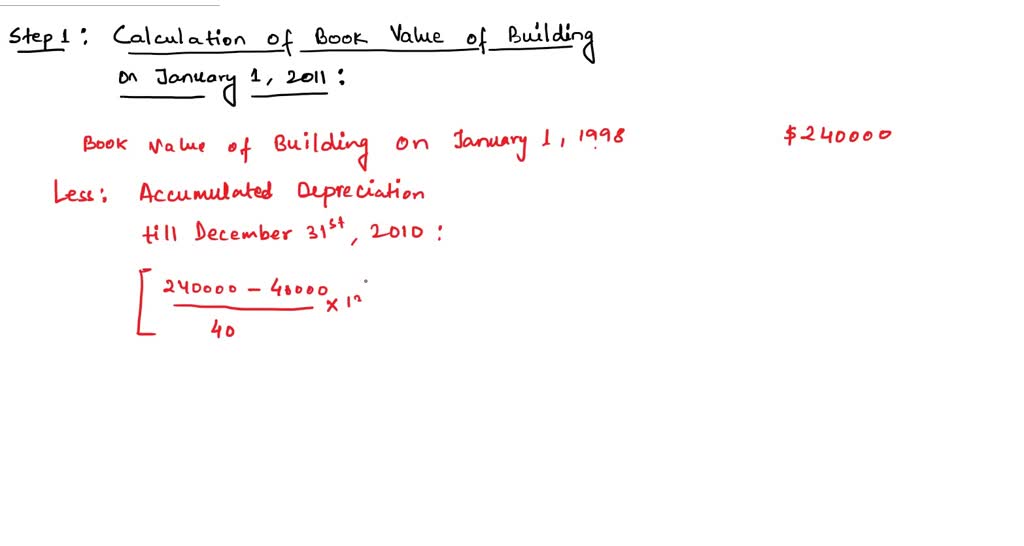 Step 1: Calculation of Book Value of Building
on January 1, 2011:
Book Value of Building on January 1, 1998 $240000
Less: Accumulated Depreciation
till December 31st, 2010:
[ 240000 - 40000
40